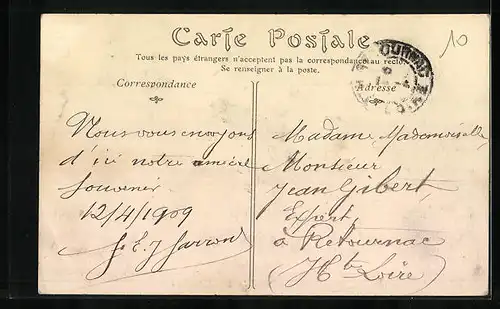 10
Carte Postale
Tous les pays étrangers n'acceptent pas la correspondance au recto.
Se renseigner à la poste.
Correspondance
Adresse
Nous vous envoyons
d'ici notre sincère
souvenir
12/4/1909
Madame, Mademoiselle,
Monsieur
Jean Gibert,
Expert,
à Retournac
(Hte Loire)